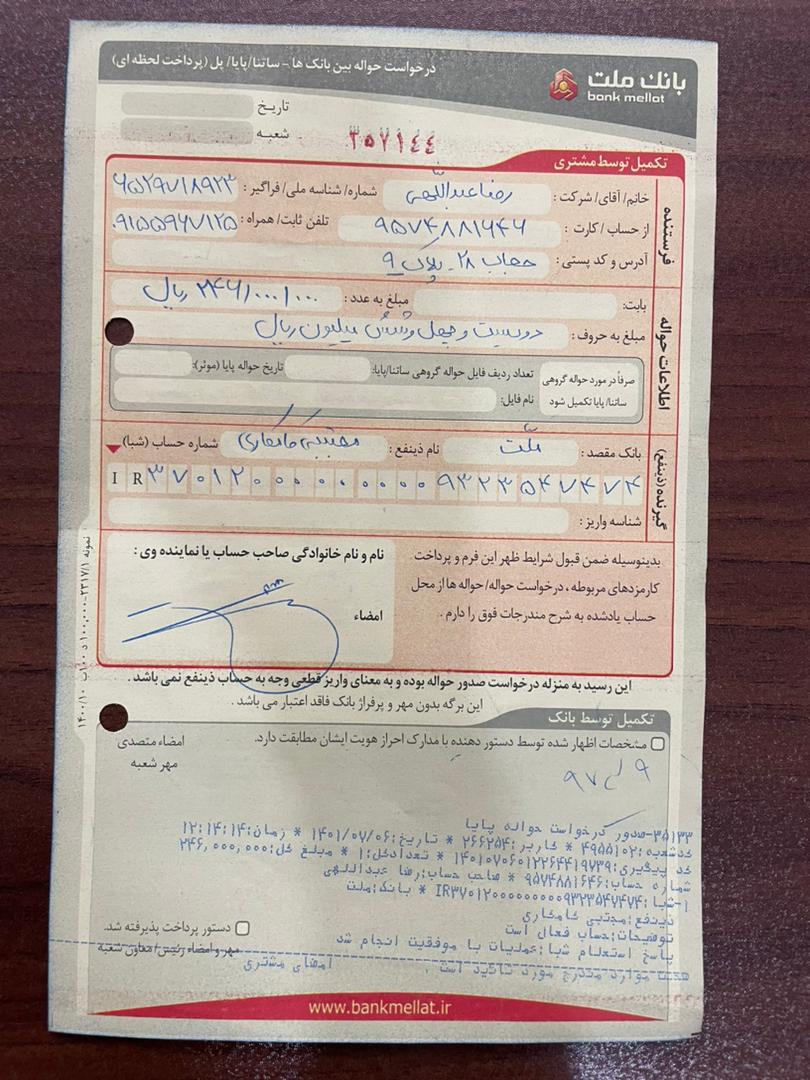 درخواست حواله بین بانک ها - ساتنا/پایا/ پل (پرداخت لحظه ای)
بانک ملت
bank mellat
تاریخ
شعبه
۳۵۷۱٤٤
تکمیل توسط مشتری
فرستنده
خانم/ آقای/ شرکت : رضا عبداللهی شماره/ شناسه ملی/ فراگیر : ۶۵۲۹۷۱۸۹۲۳
از حساب / کارت : ۹۵۷۴۸۸۱۶۴۶ تلفن ثابت/ همراه : ۰۹۱۵۵۹۶۷۱۲۵
آدرس و کد پستی : حجاب ۲۸ - پلاک ۹
اطلاعات حواله
بابت: مبلغ به عدد : ۲۴۶/۰۰۰/۰۰۰ ریال
مبلغ به حروف : دویست و چهل و شش میلیون ریال
صرفاً در مورد حواله گروهی ساتنا/ پایا تکمیل شود
تعداد ردیف فایل حواله گروهی ساتنا/پایا: تاریخ حواله پایا (موثر):
نام فایل:
گیرنده (ذینفع)
بانک مقصد : ملت نام ذینفع : مجتبی کامکاری شماره حساب (شبا)
I R ۳۷۰۱۲۰۰۰۰۰۰۰۰۰۰۹۳۲۳۵۴۷۴۷۴
شناسه واریز :
بدینوسیله ضمن قبول شرایط ظهر این فرم و پرداخت
کارمزدهای مربوطه ، درخواست حواله/ حواله ها از محل
حساب یادشده به شرح مندرجات فوق را دارم .
نام و نام خانوادگی صاحب حساب یا نماینده وی :
امضاء
این رسید به منزله درخواست صدور حواله بوده و به معنای واریز قطعی وجه به حساب ذینفع نمی باشد .
این برگه بدون مهر و پرفراژ بانک فاقد اعتبار می باشد .
تکمیل توسط بانک
مشخصات اظهار شده توسط دستور دهنده با مدارک احراز هویت ایشان مطابقت دارد.
امضاء متصدی
مهر شعبه
۳۵۱۳۳-صدور درخواست حواله پایا
کدشعبه:۴۹۵۵۱۰۲ * کاربر:۲۶۶۲۵۴ * تاریخ:۱۴۰۱/۰۷/۰۶ * زمان:۱۲:۱۴:۱۴
کد پیگیری:۱۴۰۱۰۷۰۶۰۱۲۲۶۴۴۱۹۷۳۹ * تعدادکل:۱ * مبلغ کل:۲۴۶,۰۰۰,۰۰۰
شماره حساب:۹۵۷۴۸۸۱۶۴۶ * صاحب حساب:رضا عبداللهی
۱-شبا:IR۳۷۰۱۲۰۰۰۰۰۰۰۰۰۰۹۳۲۳۵۴۷۴۷۴ * بانک:ملت
ذینفع:مجتبی کامکاری
توضیحات:حساب فعال است
پاسخ استعلام شبا:عملیات با موفقیت انجام شد
صحت موارد مندرج مورد تائید است . امضای مشتری
دستور پرداخت پذیرفته شد.
مهر و امضاء رئیس/ معاون شعبه
www.bankmellat.ir